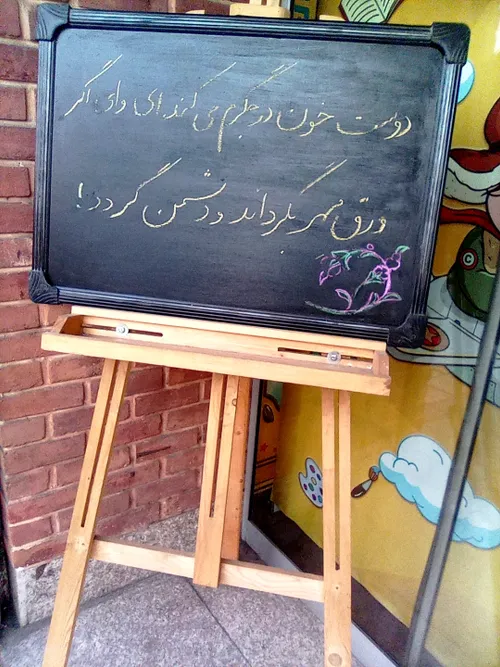 دوست خون در جگرم می کند ای وای اگر
ورق مهر بگرداند و دشمن گردد!